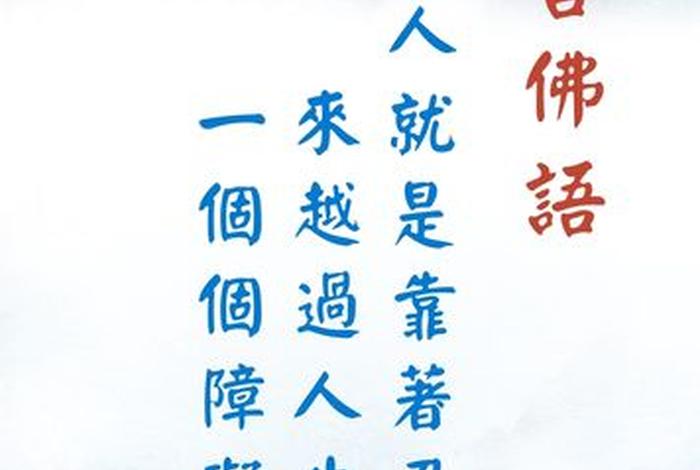 佛語
人就是靠著
來越過人
一個個障